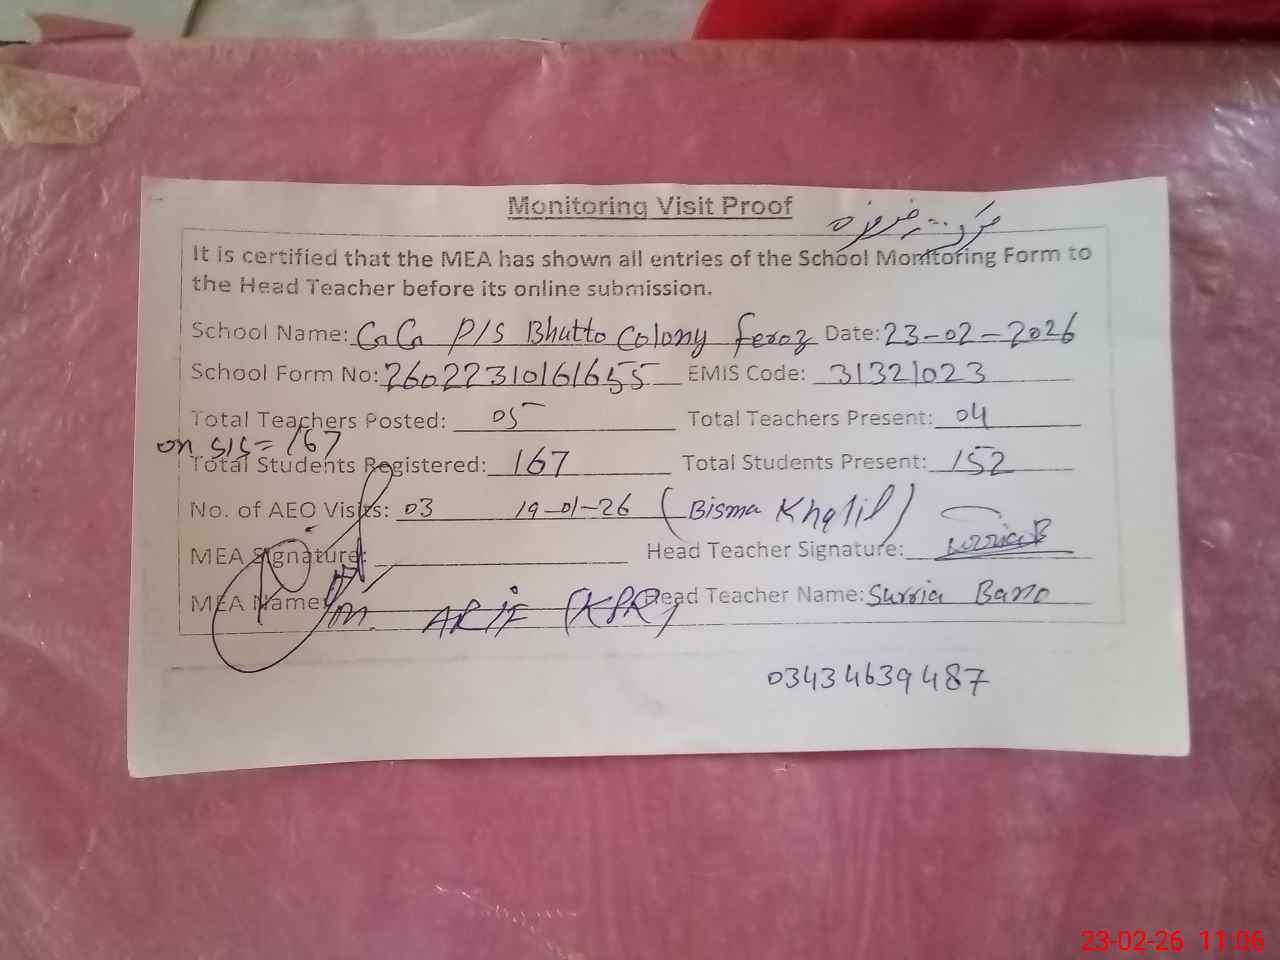 Monitoring Visit Proof
مرکز فیروزہ
It is certified that the MEA has shown all entries of the School Monitoring Form to
the Head Teacher before its online submission.
School Name: GG P/S Bhutto Colony feroz Date: 23-02-2026
School Form No: 26022310161655 EMIS Code: 31321023
Total Teachers Posted: 05 Total Teachers Present: 04
on SIS = 167
Total Students Registered: 167 Total Students Present: 152
No. of AEO Visits: 03 19-01-26 (Bisma Khalil)
MEA Signature: Head Teacher Signature:
MEA Name: M. ARIF (KPR) Head Teacher Name: Surria Bano
03434639487
23-02-26 11:06